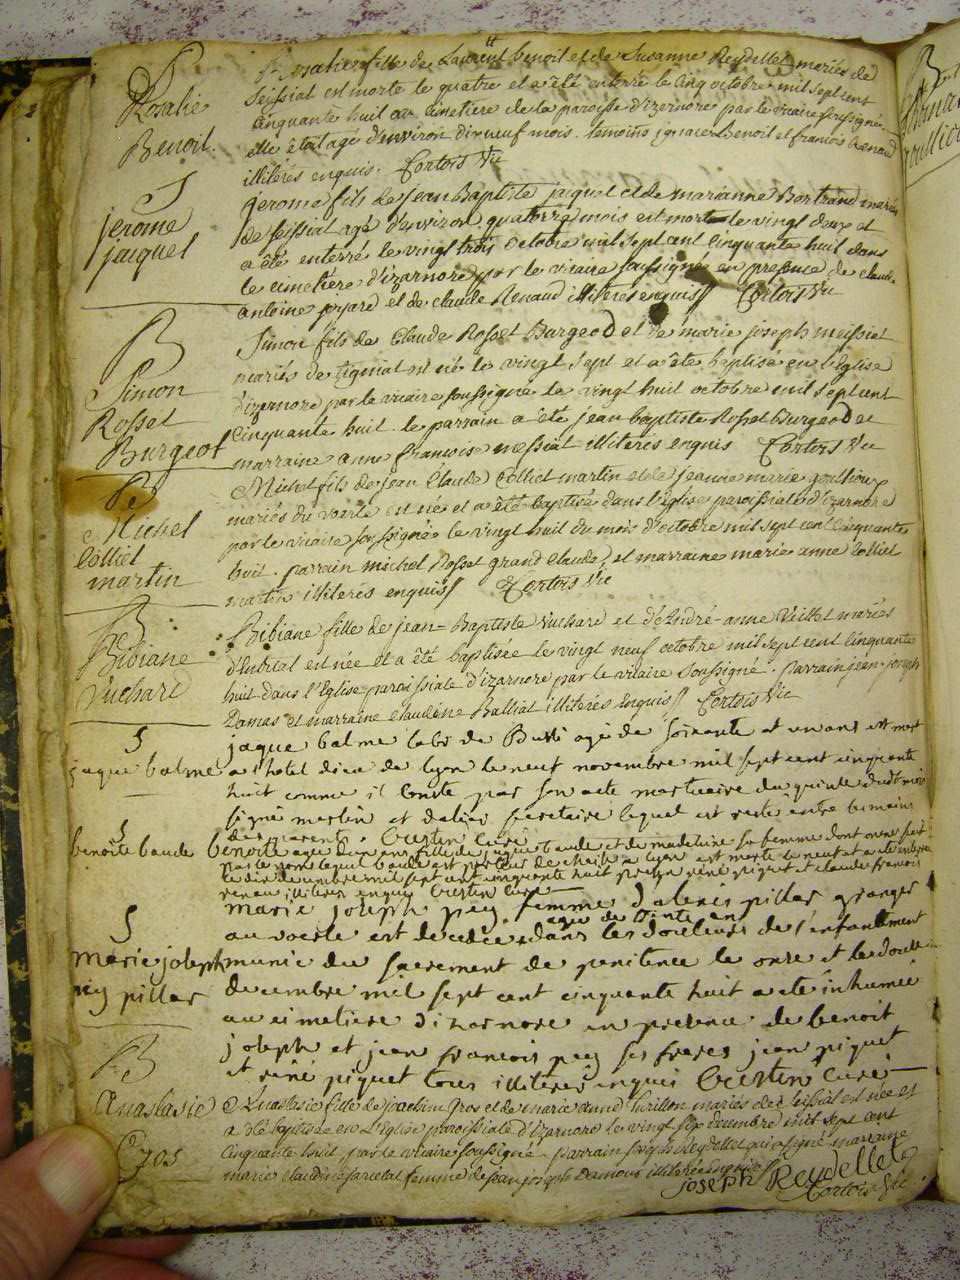 S
Rosalie
Benoit.
Rosalie fille de Laurent Benoit et de Susanne Reydellet mariés de
Seissiat est morte le quatre et a été enterré le cinq octobre mil sept cent
cinquante huit au cimetiere de la paroisse d'izernore par le vicaire soussigné.
elle étoit agé d'environ dixneuf mois. temoins ignace Benoit et francois Renaud
illitérés enquis. Cortois Vic
S
jerome
jaquet
Jerome fils de Jean Baptiste jaquet et de marianne Bertrand mariés
de seissiat agé d'environ quatorze mois est mort le vingt deux et
a été enterré le vingt trois octobre mil sept cent cinquante huit dans
le cimetiere d'izarnore par le vicaire soussigné en presence de claude
antoine et de claude Renaud illitérés enquis Cortois Vic
B
Simon
Rosset
Burgeot
Simon fils de Claude Rosset Burgeod et de marie joseph messiat
mariés de tigniat est né le vingt sept et a été baptisé en l'Eglise
d'izernore par le vicaire soussigné le vingt huit octobre mil sept cent
cinquante huit. le parrain a été jean baptiste Rosset Burgeod et
marraine anne francoise messiat illiterés enquis Cortois Vic
Be
Michel
Colliet
martin
Michel fils de jean Claude Colliet martin et de jeanne marie goullioux
mariés du voerle est né et a été baptisé dans l'église paroissiale d'izarnore
par le vicaire soussigné le vingt huit du mois d'octobre mil sept cent cinquante
huit. parrain michel Rosset grand claude, et marraine marie anne Colliet
martin illiterés enquis Cortois Vic
B
Bibiane
Vuchard
Bibiane fille de jean-Baptiste Vuchard et d'André-anne Veillet mariés
est née et a été baptisée le vingt neuf octobre mil sept cent cinquante
huit dans l'Eglise paroissiale d'izarnore par le vicaire soussigné. parrain jean-joseph
Damas et marraine claudine Balliat illiterés enquis Cortois Vic
S
jaque balme
jaque balme labr de Bussi agé de soixante et un ans est mort
a l'hotel dieu de lyon le neuf novembre mil sept cent cinquante
huit comme il conste par son acte mortuaire du quinze dudt mois
signé martin et dalier secretaire lequel est resté entre les mains
des parents. Curé
S
benoite baude
benoite agée d'un an fille de jaque baude et de madeleine sa femme dont
lequel baude est porteur de chaise a lyon est morte le neuf et a été
le dix decembre mil sept cent cinquante huit presen rené piquet et claude francois
renau illiteres enquis Curé
S
marie joseph
pey pillar
marie joseph pey femme d'alexis pillar granger
agée de trente an
au voerle est decedée dans les douleurs de l'enfantement
munie du sacrement de penitence le onze et le douze
decembre mil sept cent cinquante huit a été inhumée
au cimetiere d'izarnore en presence de benoit
joseph et jean francois pey ses freres jean piquet
et rené piquet tous illitérés enquis Curé
B
Anastasie
Gros
Anastasie fille de joachim Gros et de marie anne mariés de Seissiat est née et
a été baptisée en L'Eglise paroissiale d'izarnore le vingt decembre mil sept cent
cinquante huit par le vicaire soussigné. parrain joseph Reydellet qui a signé marraine
marie claudine femme de jean joseph Damas illiterée enquise
joseph Reydellet
Cortois Vic